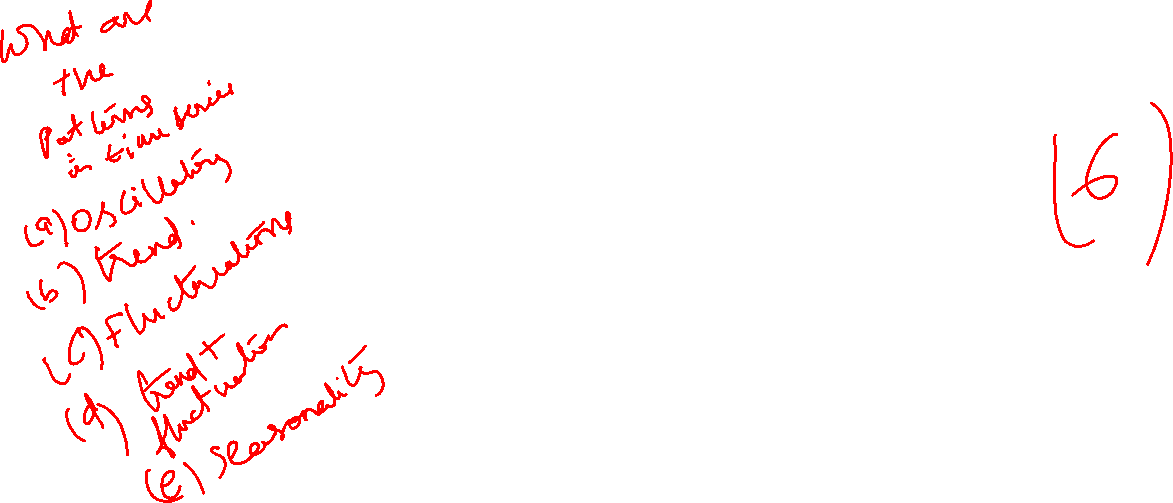 What are
the
patterns
in time series
(a) Oscillating
(b) trend.
(c) Fluctuations
(d) trend +
fluctuation
(e) seasonality
(6)